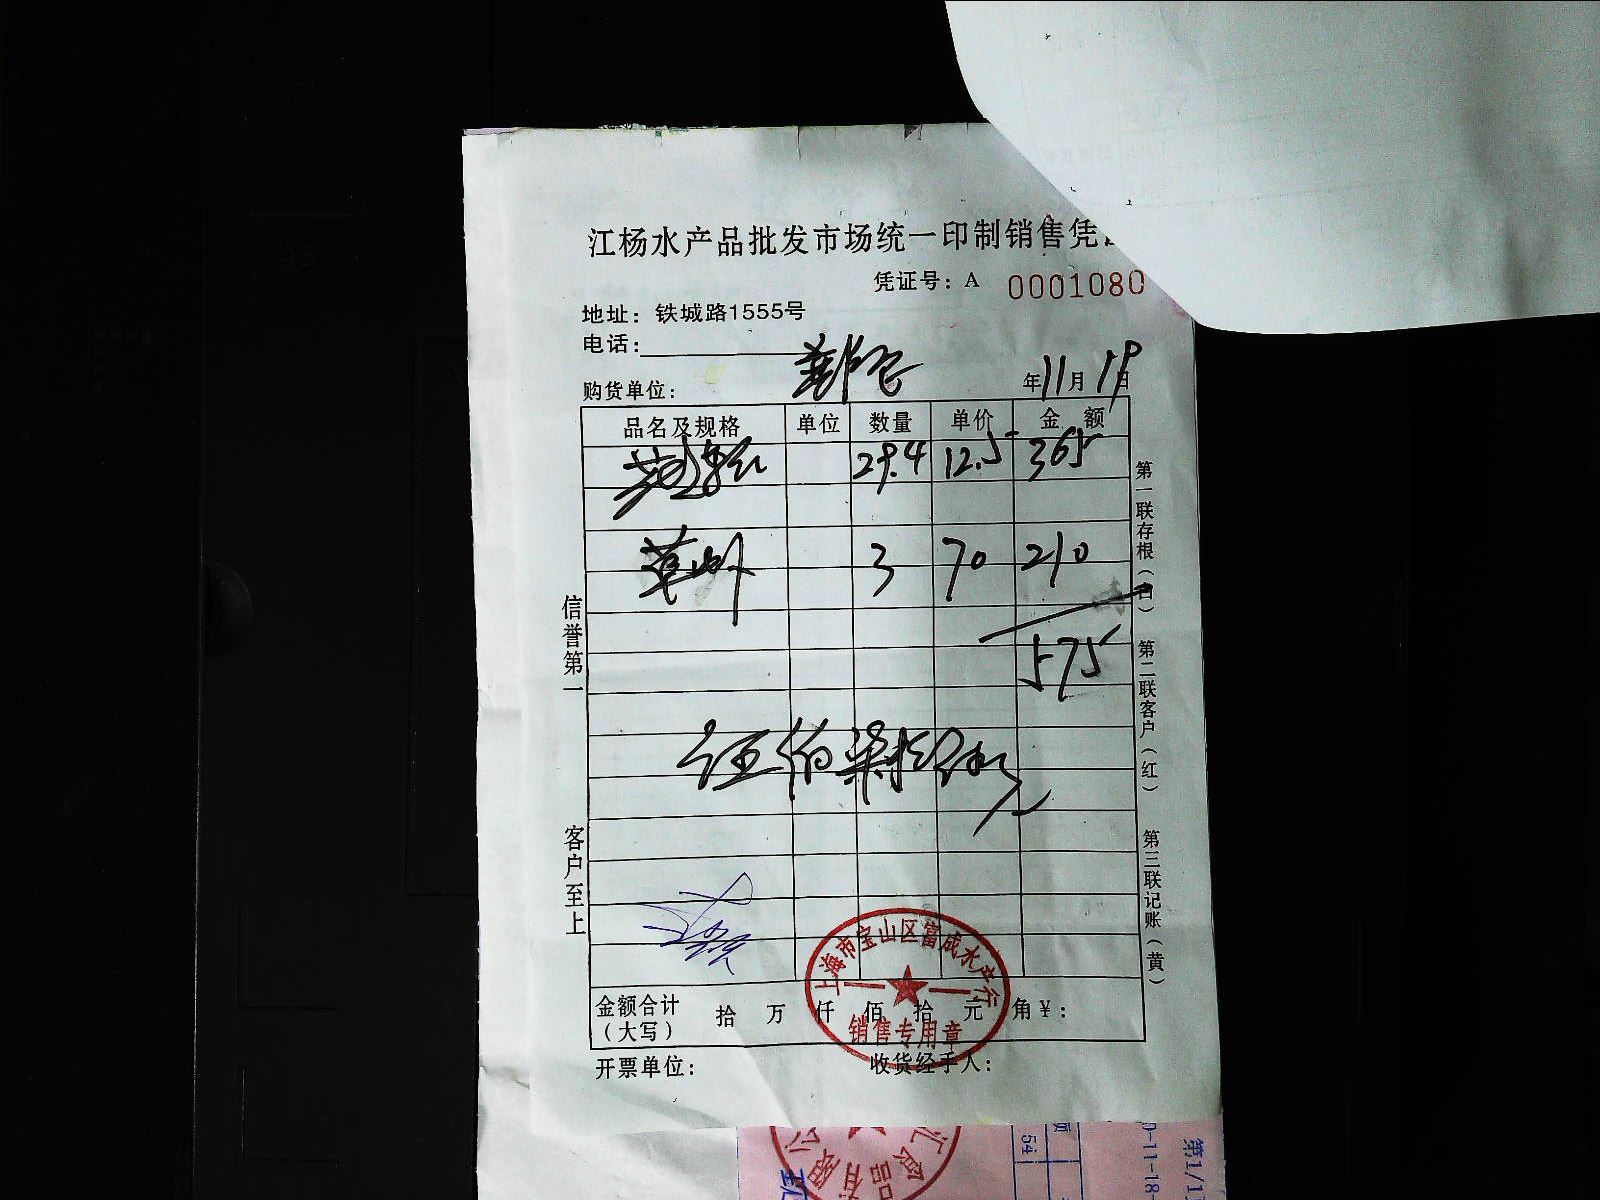 江杨水产品批发市场统一印制销售凭
凭证号：A 0001080
地址：铁城路1555号
电话：
购货单位：
年11月19日
品名及规格 单位 数量 单价 金额
29.4 12.5 365
3 70 210
575
伍佰柒拾伍元
信誉第一
客户至上
第一联存根（白）
第二联客户（红）
第三联记账（黄）
上海市宝山区富成水产行
销售专用章
金额合计（大写） 拾 万 仟 佰 拾 元 角 ¥：
开票单位： 收货经手人：
54
0-11-18-
第1/1